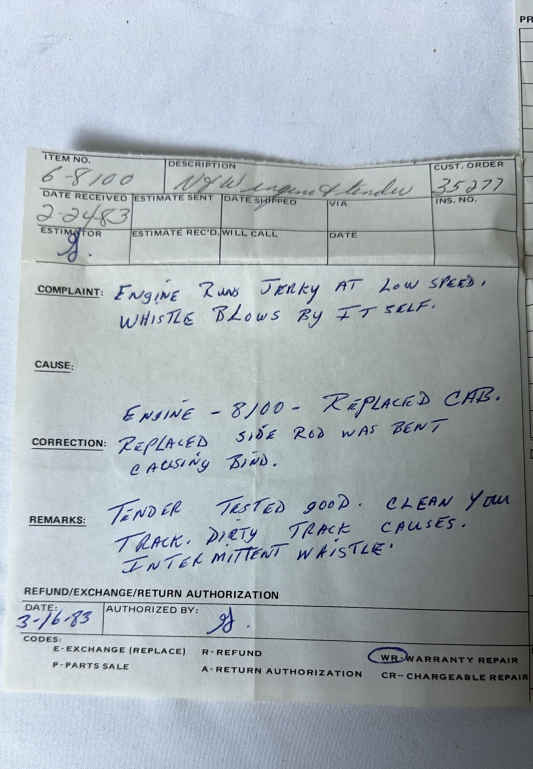 PR
ITEM NO. DESCRIPTION CUST. ORDER
6-8100 N&W engine & tender 35277
DATE RECEIVED ESTIMATE SENT DATE SHIPPED VIA INS. NO.
2-2483
ESTIMATOR ESTIMATE REC'D. WILL CALL DATE
COMPLAINT: ENGINE RUNS JERKY AT LOW SPEED.
WHISTLE BLOWS BY IT SELF.
CAUSE:
ENGINE - 8100 - REPLACED CAB.
CORRECTION: REPLACED SIDE ROD WAS BENT
CAUSING BIND.
REMARKS: TENDER TESTED GOOD. CLEAN YOUR
TRACK. DIRTY TRACK CAUSES.
INTERMITTENT WAISTLE.
REFUND/EXCHANGE/RETURN AUTHORIZATION
DATE: AUTHORIZED BY:
3-16-83
CODES:
E-EXCHANGE (REPLACE) R-REFUND WR-WARRANTY REPAIR
P-PARTS SALE A-RETURN AUTHORIZATION CR-CHARGEABLE REPAIR